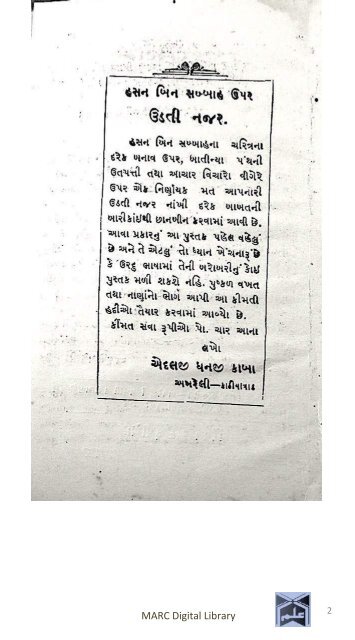 હસન બિન સબ્બાહ ઉપર
ઉડતી નજર.
હસન બિન સબ્બાહના ચરિત્રના
દરેક બનાવ ઉપર, બાતીન્યા પંથની
ઉત્પત્તી તથા આચાર વિચારો વીગેરે
ઉપર એક નિર્ણાયક મત આપનારી
ઉડતી નજર નાંખી દરેક બાબતની
બારીકાઇથી છાનબીન કરવામાં આવી છે.
આવા પ્રકારનું આ પુસ્તક પહેલ વહેલું
છે અને તે એટલું તો ધ્યાન ખેંચનારૂં છે
કે ઉરદુ ભાષામાં તેની બરોબરીનું કોઇ
પુસ્તક મળી શકશે નહિ. પુષ્કળ વખત
તથા નાણાંનો ભોગ આપી આ કીમતી
હદીઓ તૈયાર કરવામાં આવ્યો છે.
કીંમત સવા રૂપીઓ પો. ચાર આના
લખો
એદલજી ધનજી કાબા
અમરેલી—કાઠીયાવાડ
MARC Digital Library
2